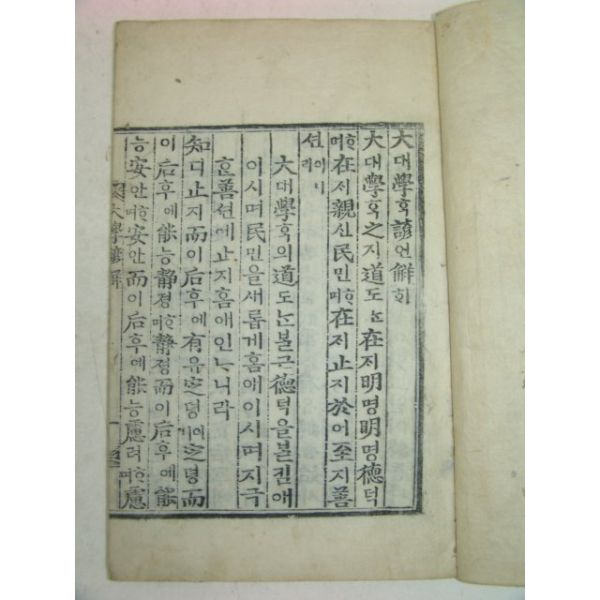 大대學학諺언觧ᄒᆡ
大대學학之지道도ᄂᆞᆫ在ᄌᆡ明명明명德덕
ᄒᆞ며在ᄌᆡ親신民민ᄒᆞ며在ᄌᆡ止지於어至지善
션이니라
大대學학의道도ᄂᆞᆫᄇᆞᆯ근德덕을ᄇᆞᆯ킴애
이시며民민을새롭게홈애이시며지극
ᄒᆞᆫ善션에止지홈애인ᄂᆞ니라
知디止지而이后후에有유定뎡이니定뎡而
이后후에能능靜졍ᄒᆞ며靜졍而이后후에能
능安안ᄒᆞ며安안而이后후에能능慮려ᄒᆞ며慮
大學諺解 一